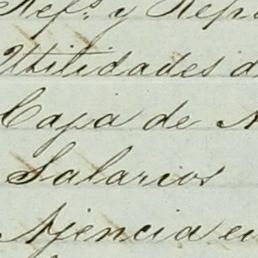 Refs. y Repa
Utilidades d
Caja de
Salarios
Ajencia en